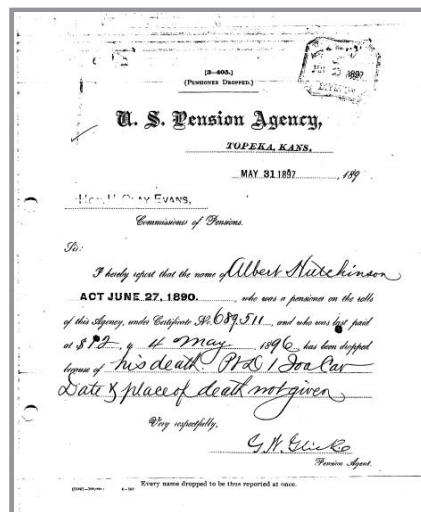 [3—405.]
(PENSIONER DROPPED.)
U. S. Pension Agency,
TOPEKA, KANS,
MAY 31 1897, 189
Hon. H. CLAY EVANS,
Commissioner of Pensions.
Sir:
I hereby report that the name of Albert Hutchinson
ACT JUNE 27, 1890., who was a pensioner on the rolls
of this Agency, under Certificate No. 689,511, and who was last paid
at $12, to 4 May, 1896, has been dropped
because of his death. Pvt D 1 Ioa Cav
Date & place of death not given
Very respectfully,
G. W. Glick
Pension Agent.
Every name dropped to be thus reported at once.